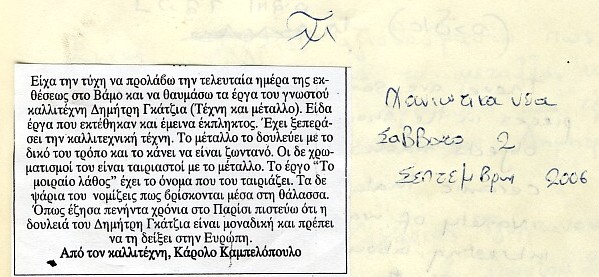 Είχα την τύχη να προλάβω την τελευταία ημέρα της εκ-
θέσεως στο Βάμο και να θαυμάσω τα έργα του γνωστού
καλλιτέχνη Δημήτρη Γκάτζια (Τέχνη και μέταλλο). Είδα
έργα που εκτέθηκαν και έμεινα έκπληκτος. Έχει ξεπερά-
σει την καλλιτεχνική τέχνη. Το μέταλλο το δουλεύει με το
δικό του τρόπο και το κάνει να είναι ζωντανό. Οι δε χρω-
ματισμοί του είναι ταιριαστοί με το μέταλλο. Το έργο “Το
μοιραίο λάθος” έχει το όνομα που του ταιριάζει. Τα δε
ψάρια του νομίζεις πως βρίσκονται μέσα στη θάλασσα.
Όπως έζησα πενήντα χρόνια στο Παρίσι πιστεύω ότι η
δουλειά του Δημήτρη Γκάτζια είναι μοναδική και πρέπει
να τη δείξει στην Ευρώπη.
Από τον καλλιτέχνη, Κάρολο Καμπελόπουλο
Χανιώτικα νέα
Σάββατο 2
Σεπτεμβρη 2006